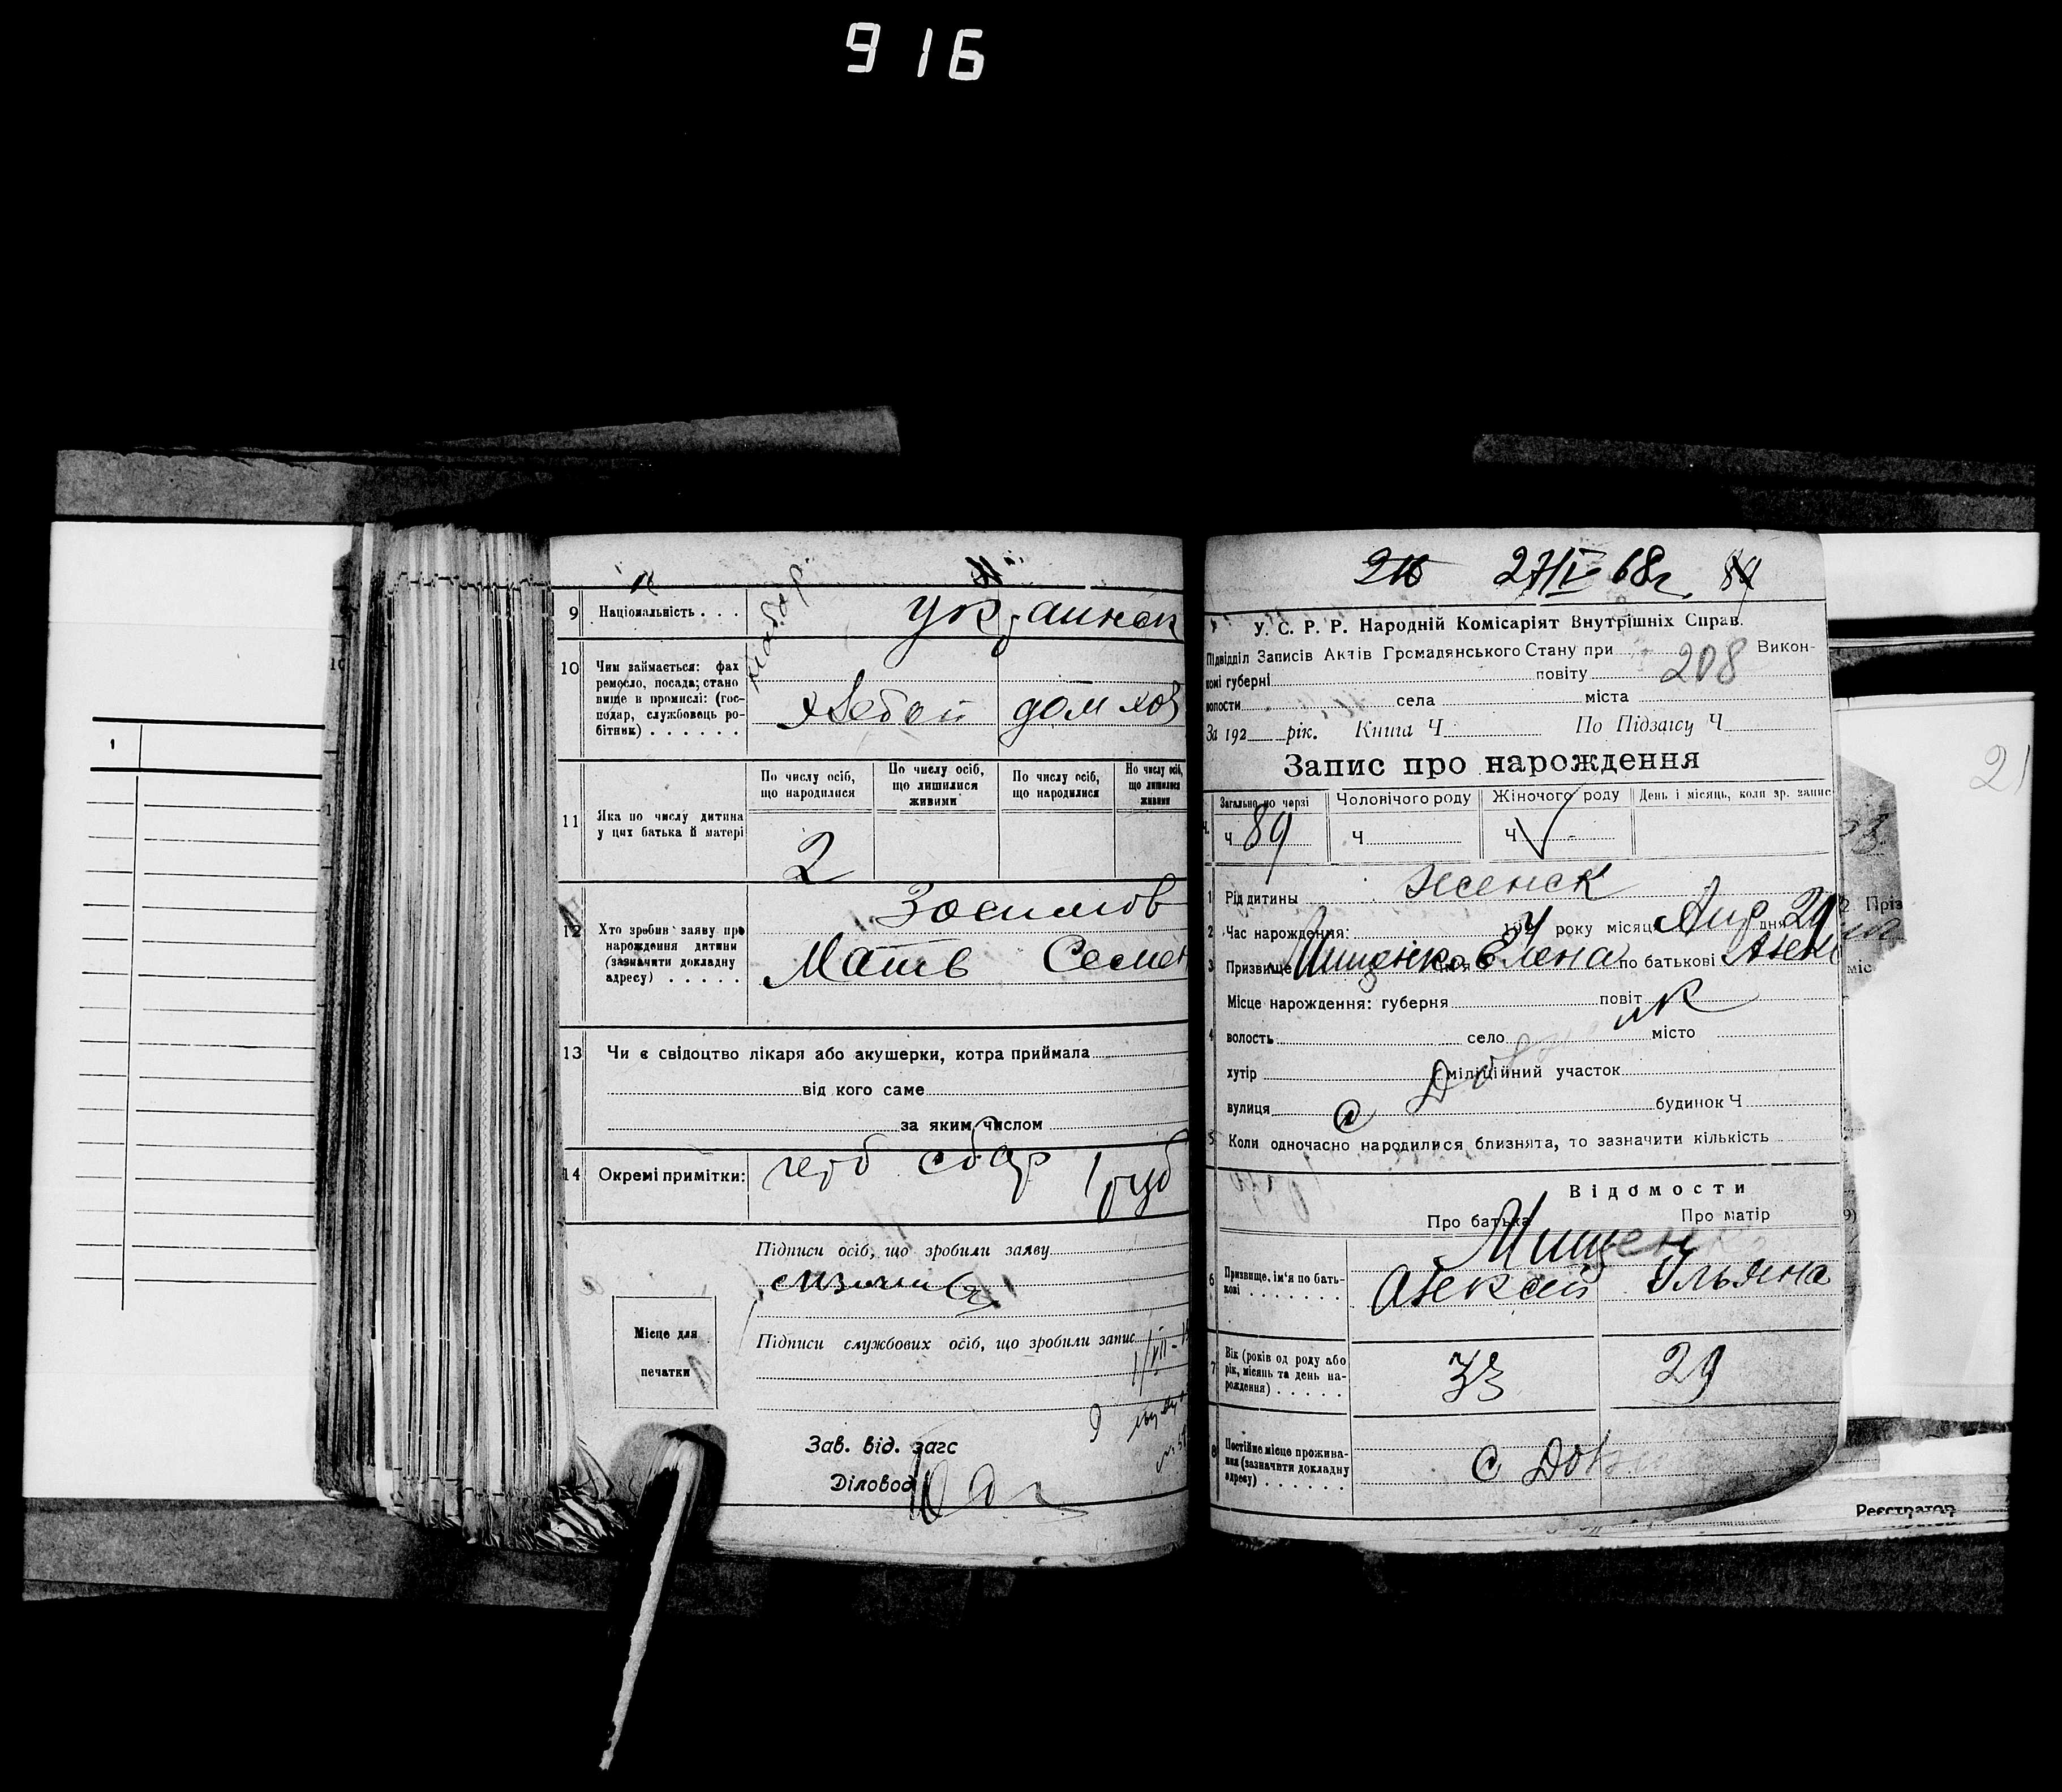 916
9 Національність . . .
украинск
10 Чим займається: фах
ремесло, посада; стано
вище в промислі: (гос-
подар, службовець ро-
бітник) . . . . . .
хлебоп дом хоз
11 Яка по числу дитина
у цих батька й матері
По числу осіб,
що народилися
По числу осіб,
що лишилися
живими
По числу осіб,
що народилися
По числу осіб,
що лишилися
живими
2
12 Хто зробив заяву про
народження дитини
(зазначити докладну
адресу) . . . . .
Зосимов
Матв Семен
13 Чи є свідоцтво лікаря або акушерки, котра приймала
від кого саме
за яким числом
14 Окремі примітки:
герб сбор 1 руб
Підписи осіб, що зробили заяву
Місце для
печатки
Підписи службових осіб, що зробили запис
Зав. від. загс
Діловод
27/IV 68г. 89
У. С. Р. Р. Народній Комісаріят Внутрішніх Справ.
Підвідділ Записів Актів Громадянського Стану при Викон-
комі губерні повіту 208
волости села міста
За 192 рік. Книга Ч По Підзапису Ч
Запис про нарождення
Загально по черзі Чоловічого роду Жіночого роду День і місяць, коли зр. запис
Ч 89 Ч Ч
1 Рід дитини женск
2 Час нарождення: 192 4 року місяц Апр дня 29
3 Призвище Мищенко ім'я Елена по батькові Алекс
Місце нарождення: губерня повіт
4 волость село місто
хутір міліційний участок
вулиця с будинок Ч
5 Коли одночасно народилися близнята, то зазначити кількість
Відомости
Про батька Про матір
Мищенко
6 Призвище, ім'я по бать-
кові . . . . . . .
Алексей Ульяна
7 Вік (років од роду або
рік, місяць та день на-
рождення) . . . . .
33 29
8 Постійне місце прожива-
ння (зазначити докладну
адресу) . . . . . .
с
Реєстратор